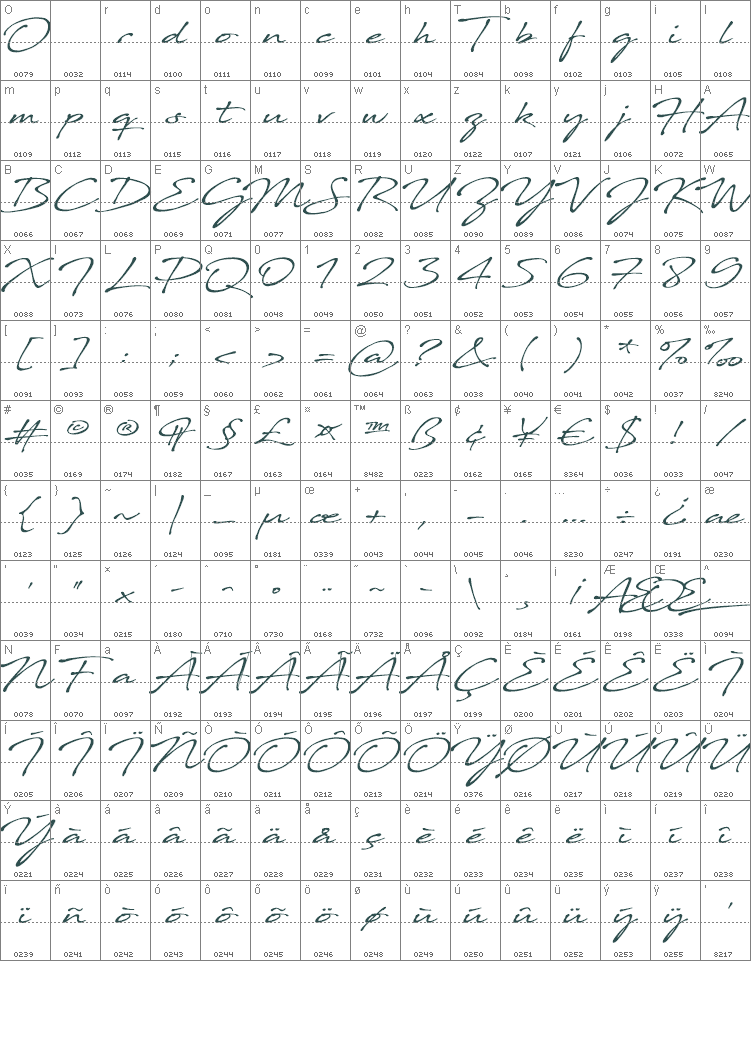 O r d o n c e h T b f g i l
O r d o n c e h T b f g i l
0079 0032 0114 0100 0111 0110 0099 0101 0104 0084 0098 0102 0103 0105 0108
m p q s t u v w x z k y j H A
m p q s t u v w x z k y j H A
0109 0112 0113 0115 0116 0117 0118 0119 0120 0122 0107 0121 0106 0072 0065
B C D E G M S R U Z Y V J K W
B C D E G M S R U Z Y V J K W
0066 0067 0068 0069 0071 0077 0083 0082 0085 0090 0089 0086 0074 0075 0087
X I L P Q 0 1 2 3 4 5 6 7 8 9
X I L P Q 0 1 2 3 4 5 6 7 8 9
0088 0073 0076 0080 0081 0048 0049 0050 0051 0052 0053 0054 0055 0056 0057
[ ] : ; < > = @ ? & ( ) * % ‰
[ ] : ; < > = @ ? & ( ) * % ‰
0091 0093 0058 0059 0060 0062 0061 0064 0063 0038 0040 0041 0042 0037 8240
# © ® ¶ § £ ¤ ™ ß ¢ ¥ € $ ! /
# © ® ¶ § £ ¤ ™ ß ¢ ¥ € $ ! /
0035 0169 0174 0182 0167 0163 0164 8482 0223 0162 0165 8364 0036 0033 0047
{ } ~ | _ µ œ + , - . … ÷ ¿ æ
{ } ~ | _ µ œ + , - . … ÷ ¿ æ
0123 0125 0126 0124 0095 0181 0339 0043 0044 0045 0046 8230 0247 0191 0230
' " × ´ ˆ ˚ ¨ ˜ ` \ ¸ ¡ Æ Œ ^
' " × ´ ˆ ˚ ¨ ˜ ` \ ¸ ¡ Æ Œ
0039 0034 0215 0180 0710 0730 0168 0732 0096 0092 0184 0161 0198 0338 0094
N F a À Á Â Ã Ä Å Ç È É Ê Ë Ì
N F a À Á Â Ã Ä Å Ç È É Ê Ë Ì
0078 0070 0097 0192 0193 0194 0195 0196 0197 0199 0200 0201 0202 0203 0204
Í Î Ï Ñ Ò Ó Ô Õ Ö Ÿ Ø Ù Ú Û Ü
Í Î Ï Ñ Ò Ó Ô Õ Ö Ÿ Ø Ù Ú Û Ü
0205 0206 0207 0209 0210 0211 0212 0213 0214 0376 0216 0217 0218 0219 0220
Ý à á â ã ä å ç è é ê ë ì í î
Ý à á â ã ä å ç è é ê ë ì í î
0221 0224 0225 0226 0227 0228 0229 0231 0232 0233 0234 0235 0236 0237 0238
ï ñ ò ó ô õ ö ø ù ú û ü ý ÿ ’
ï ñ ò ó ô õ ö ø ù ú û ü ý ÿ ’
0239 0241 0242 0243 0244 0245 0246 0248 0249 0250 0251 0252 0253 0255 8217